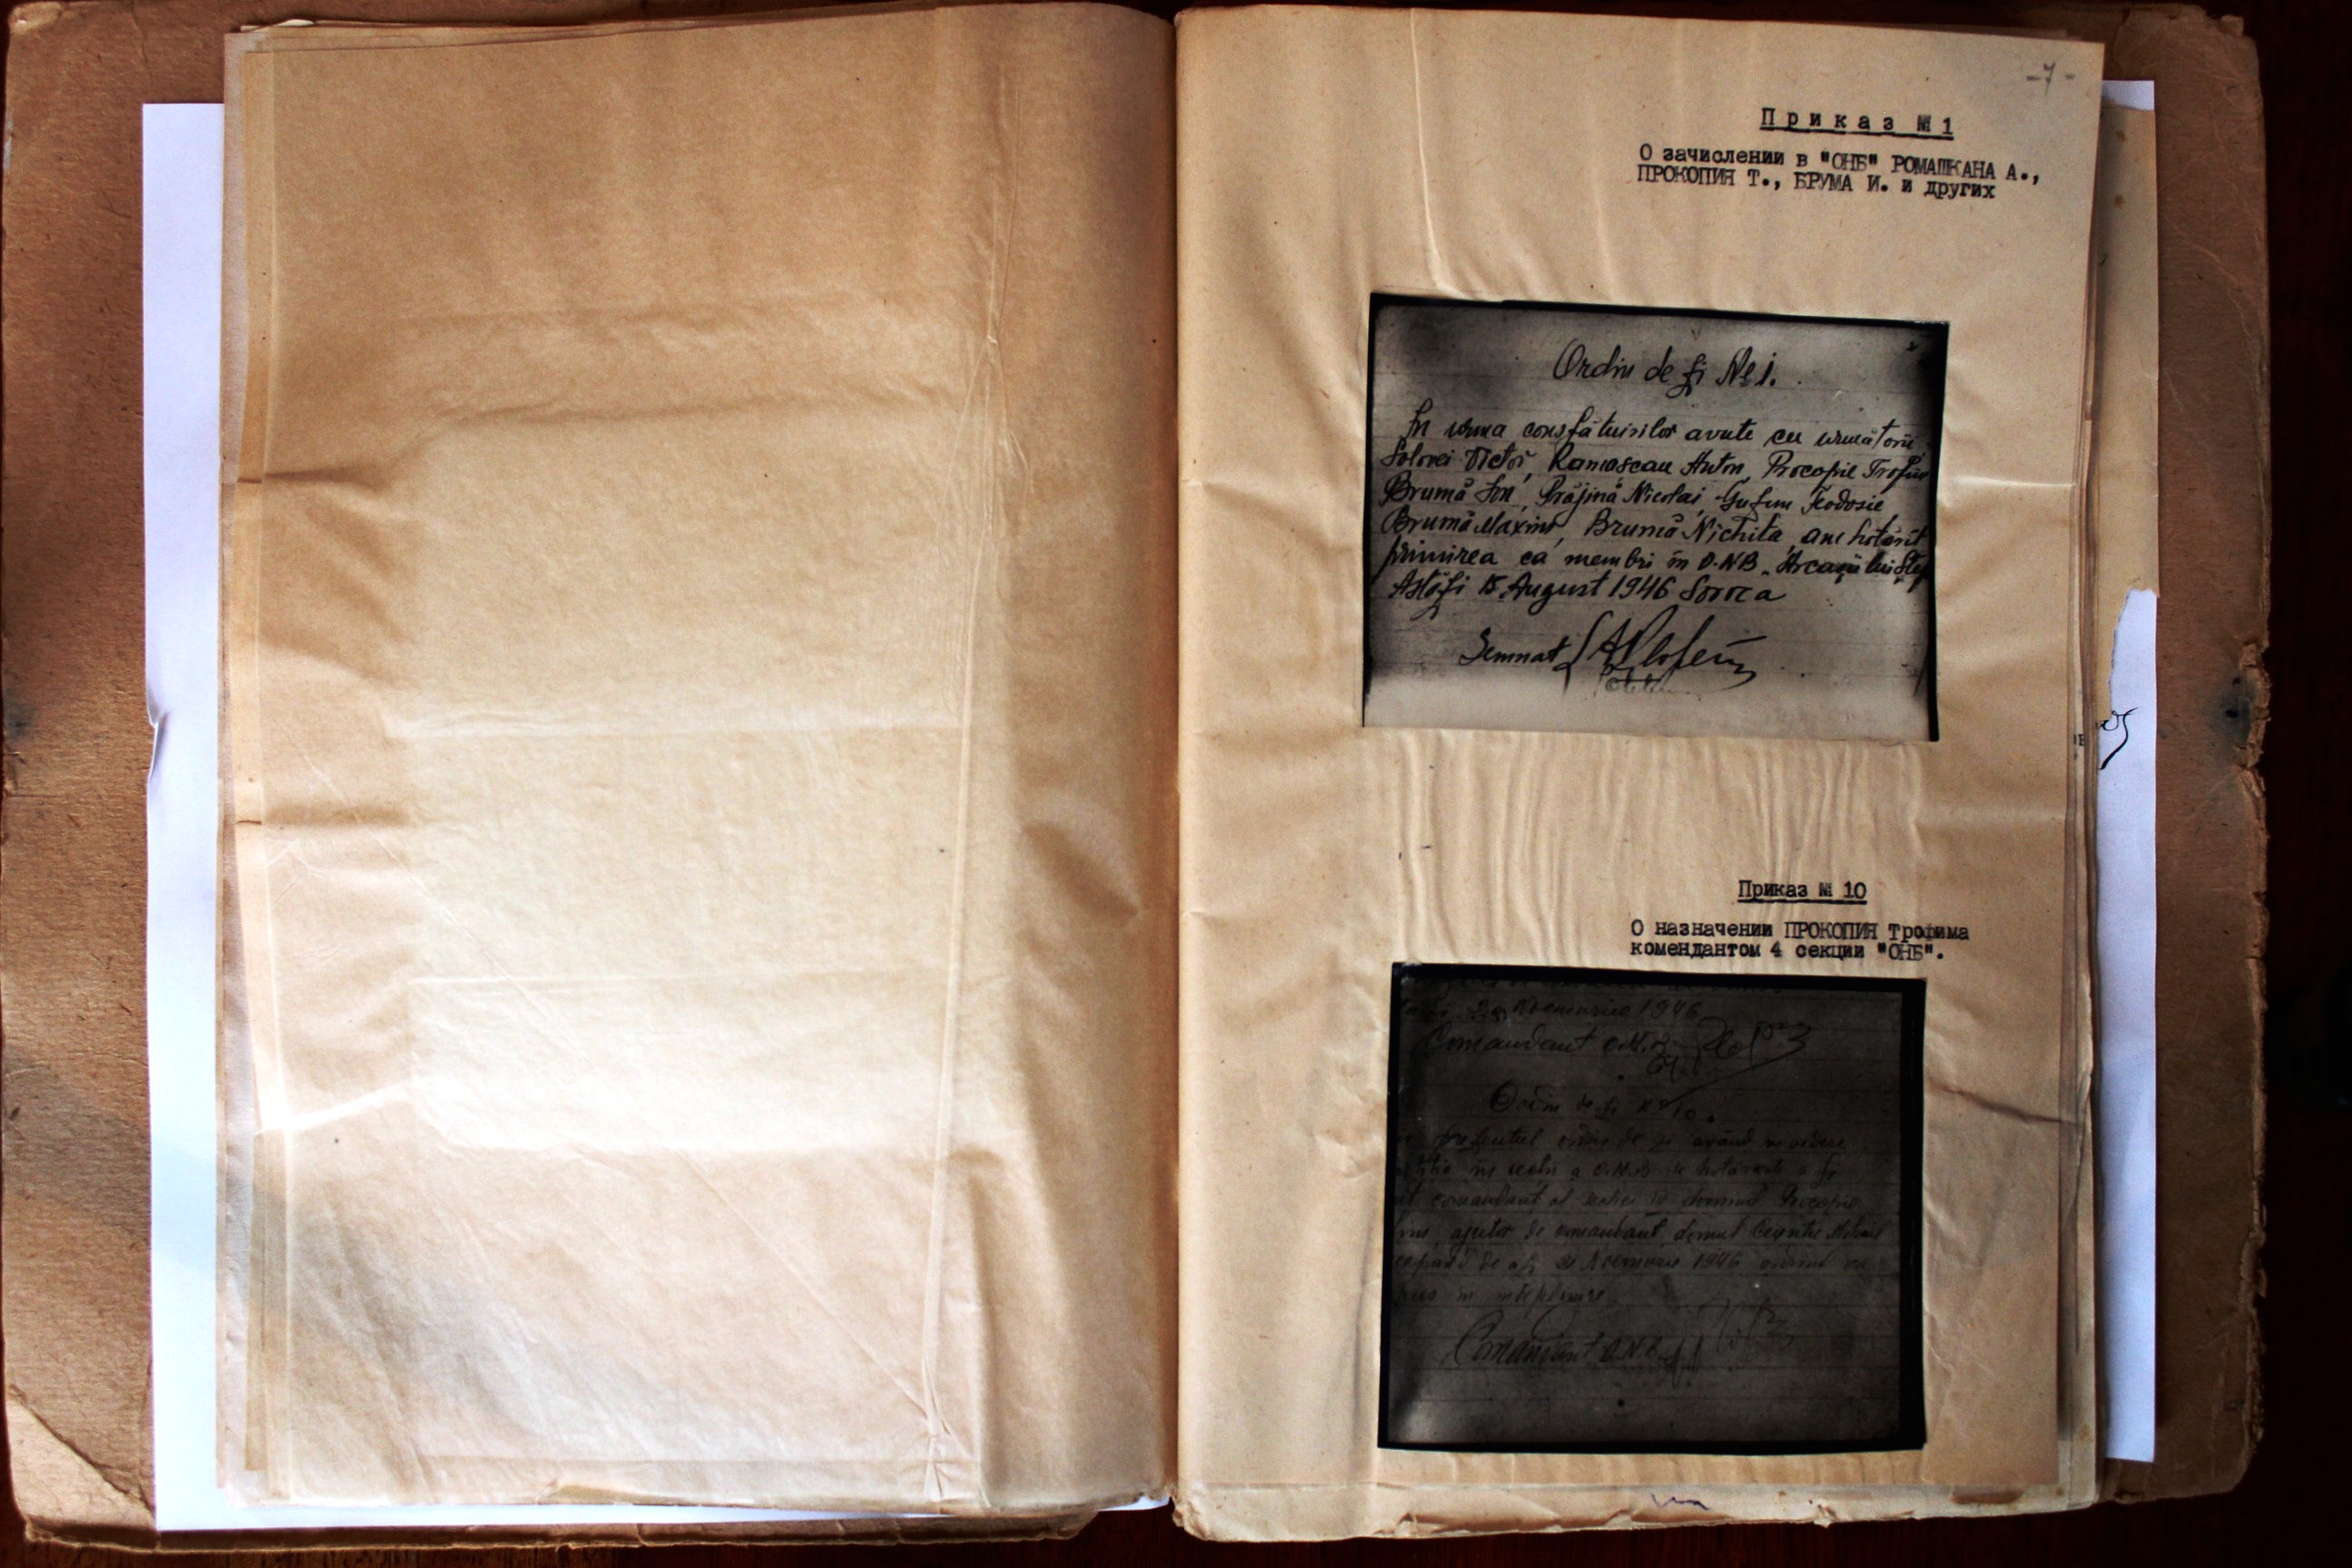 -7-
Приказ №1
О зачислении в "ОНБ" РОМАШКАНА А.,
ПРОКОПИЯ Т., БРУМА И. и других
Ordin de zi № 1.
In urma consfătuirilor avute cu următorii
Solovei Victor, Romascan Anton, Procopie Trofim
Brumă Ion, Prăjină Nicolai, Guțum Feodosie
Brumă Maxim, Brumă Nichita, am hotărît
primirea ca membri in O.N.B „Arcașii lui Ștef
Astăzi 15 August 1946 Soroca
Semnat
Приказ № 10
О назначении ПРОКОПИЯ Трофима
комендантом 4 секции "ОНБ".
Noemvrie 1946
Comandant O.N.B.
Ordin de zi № 10.
prezentul ordin de zi avănd in vedere
in secții a O.N.B. se hotărăște a fi
comandant al secției IV domnul Procopie
ajutor de comandant domnul Mihail
de azi Noemvrie 1946 ordinul va
pus in indeplinire
Comandant O.N.B.